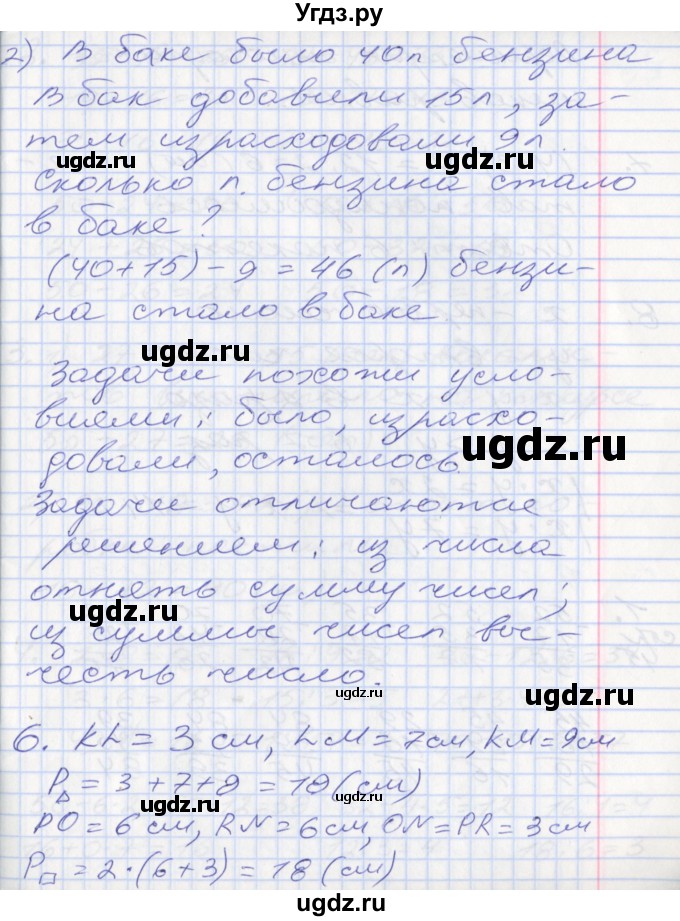 Угдз.ру
2) В баке было 40л бензина
В бак добавили 15л, за-
тем израсходовали 9л.
ugdz.ru ugdz.ru
Сколько л. бензина стало
в баке?
(40+15)-9=46(л) бензи-
на стало в баке.
ugdz.ru
Задачи похожи усло-
виями: было, израсхо-
ugdz.ru
довали, осталось.
Задачи отличаются
решением: из числа
отнять сумму чисел;
ugdz.ru
из суммы чисел вы-
честь число.
ugdz.ru
6. KL = 3 см, LM = 7см, KM = 9см
P△ = 3+7+9 = 19(см)
ugdz.ru
PO = 6 см, RN = 6см, ON = PR = 3 см
P□ = 2·(6+3) = 18 (см)
ugdz.ru
ugdz.ru